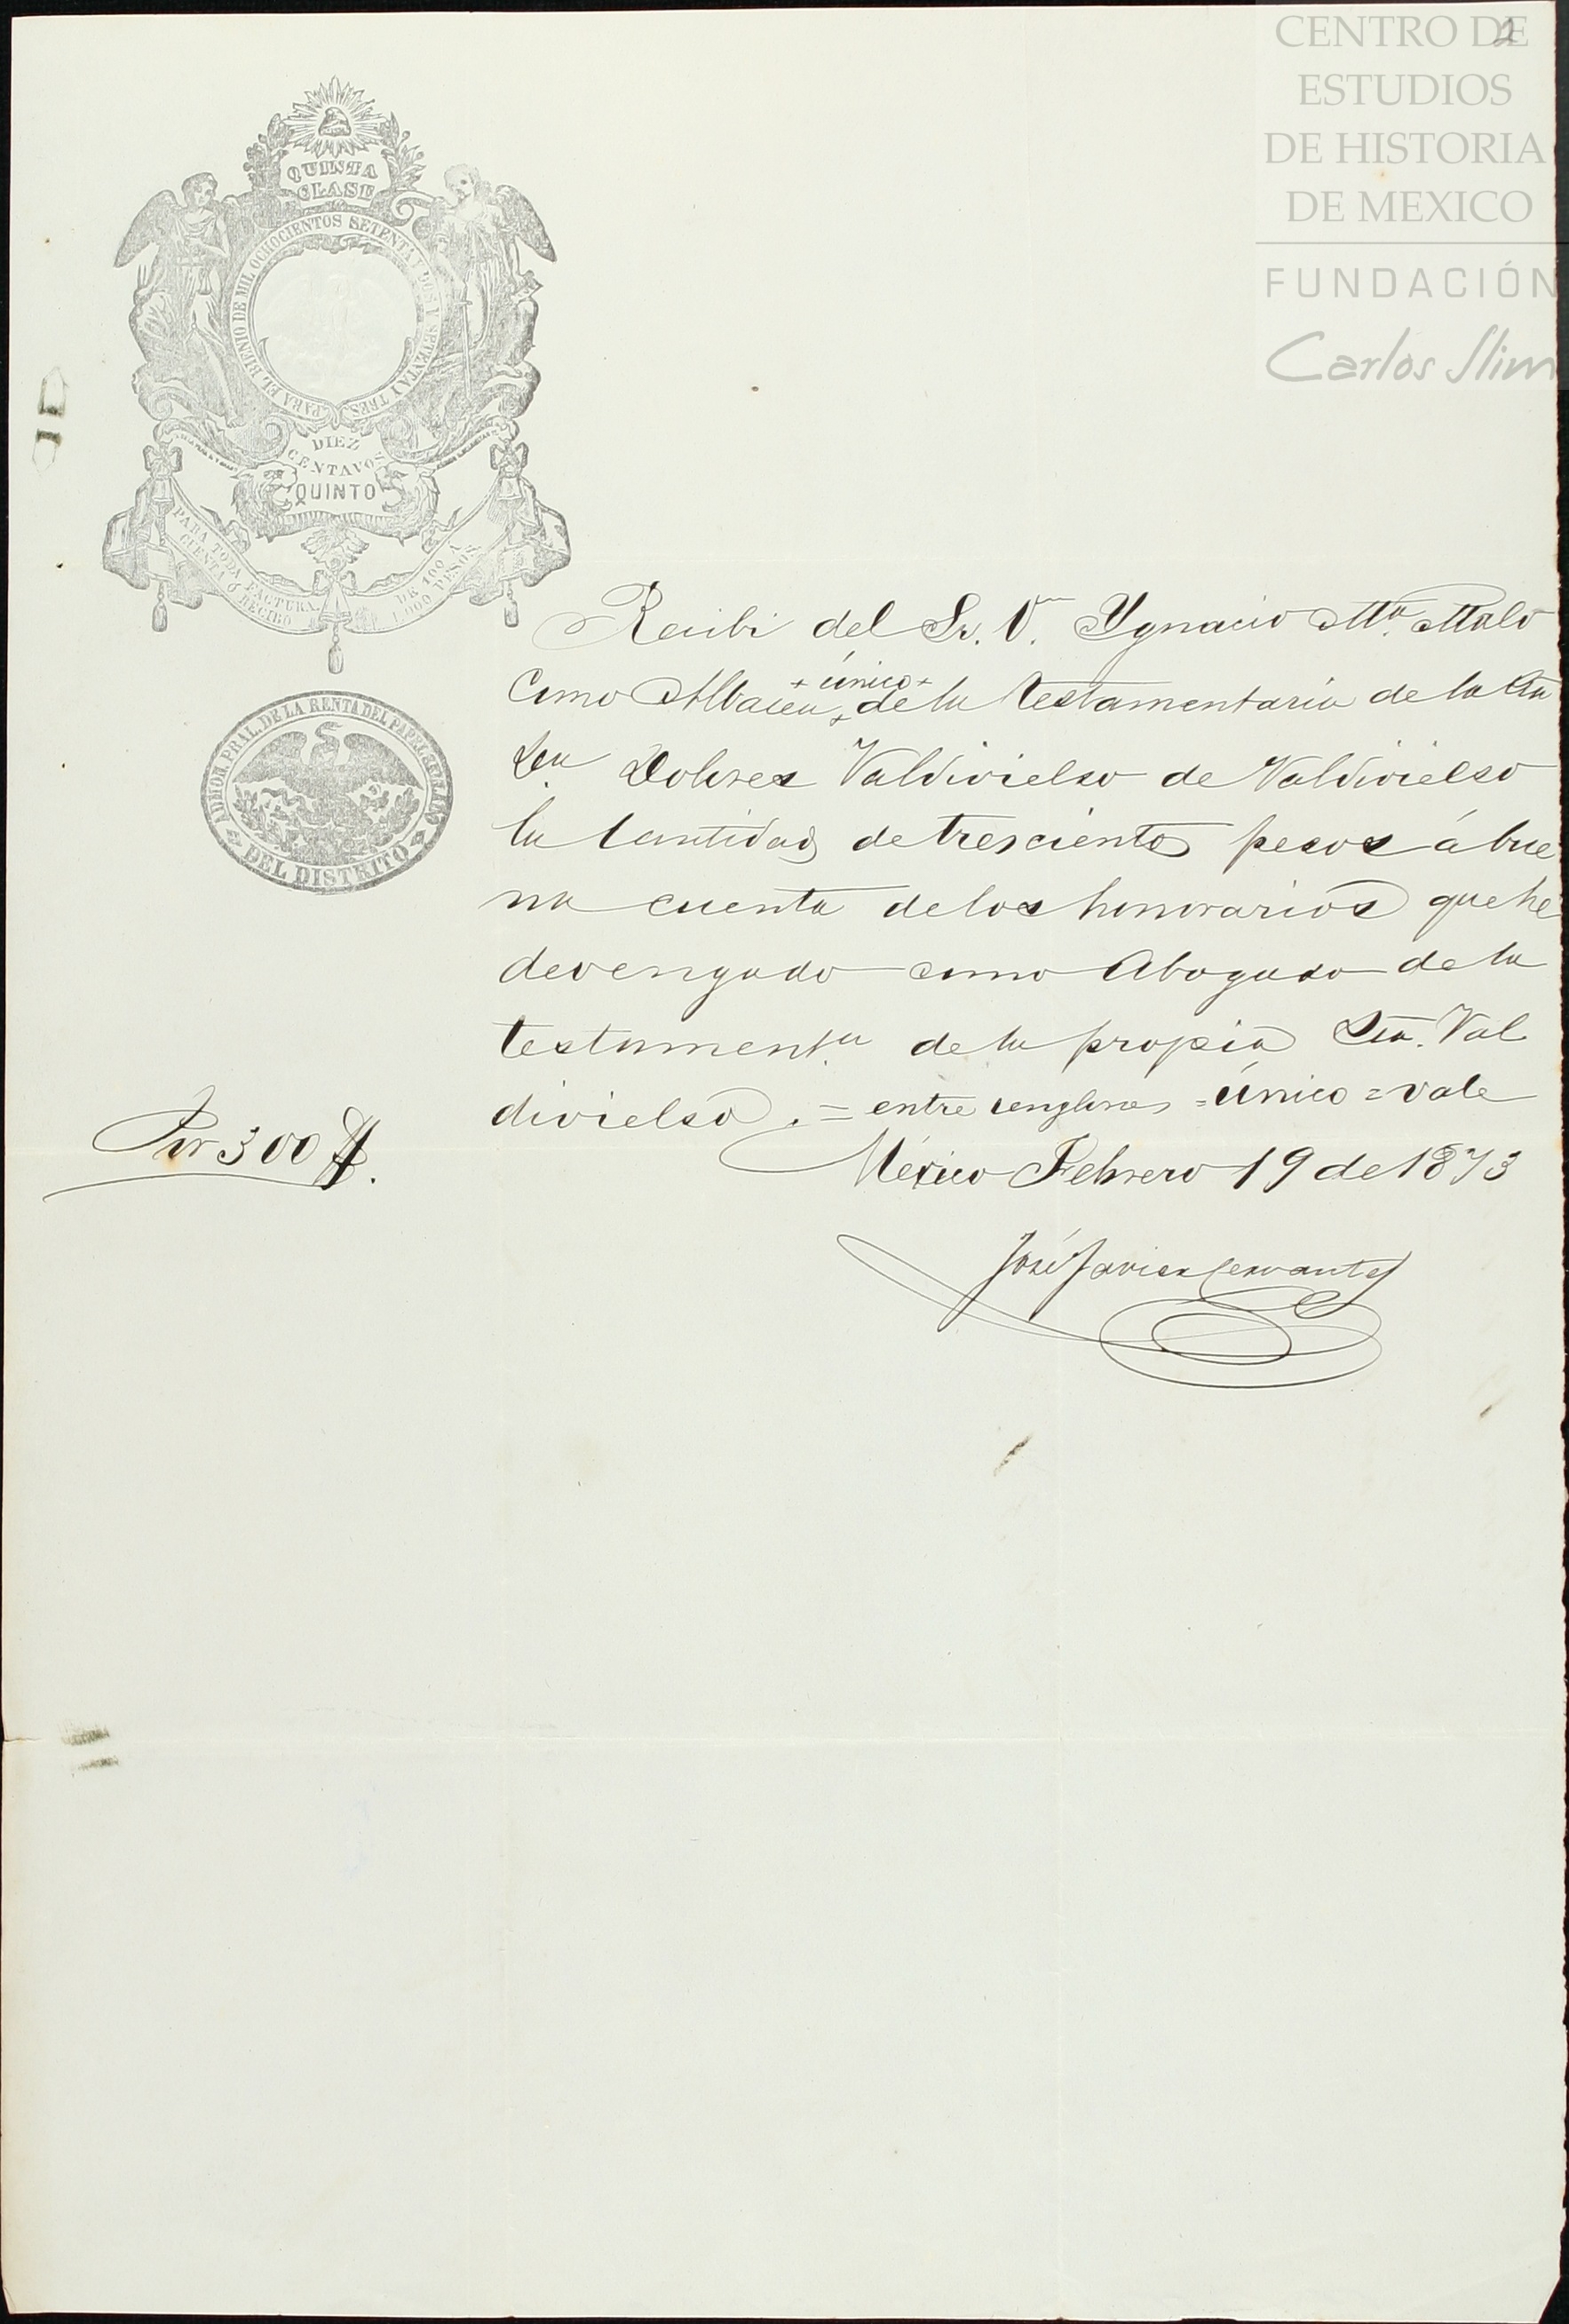 CENTRO DE
ESTUDIOS
DE HISTORIA
DE MEXICO
FUNDACIÓN
Carlos Slim
2
QUINTA
CLASE
PARA EL BIENIO DE MIL OCHOCIENTOS SETENTA Y DOS Y SETENTA Y TRES
DIEZ
CENTAVOS
QUINTO
PARA TODA FACTURA, DE 100 A
CUENTA Ó RECIBO 1,000 PESOS.
ADMON. PRAL. DE LA RENTA DEL PAPEL SELLADO
DEL DISTRITO
Recibi del Sr. D. Ygnacio Ma. Malo
+ único +
como Albacea + de la testamentaria de la Sra
Da. Dolores Valdivielso de Valdivielso
la cantidad de trescientos pesos á bue
na cuenta de los honorarios que he
devengado como Abogado de la
testamenta. de la propia Sra. Val
divielso. = entre renglones = único = vale
Por 300 $.
México Febrero 19 de 1873
José Javier Cervantes